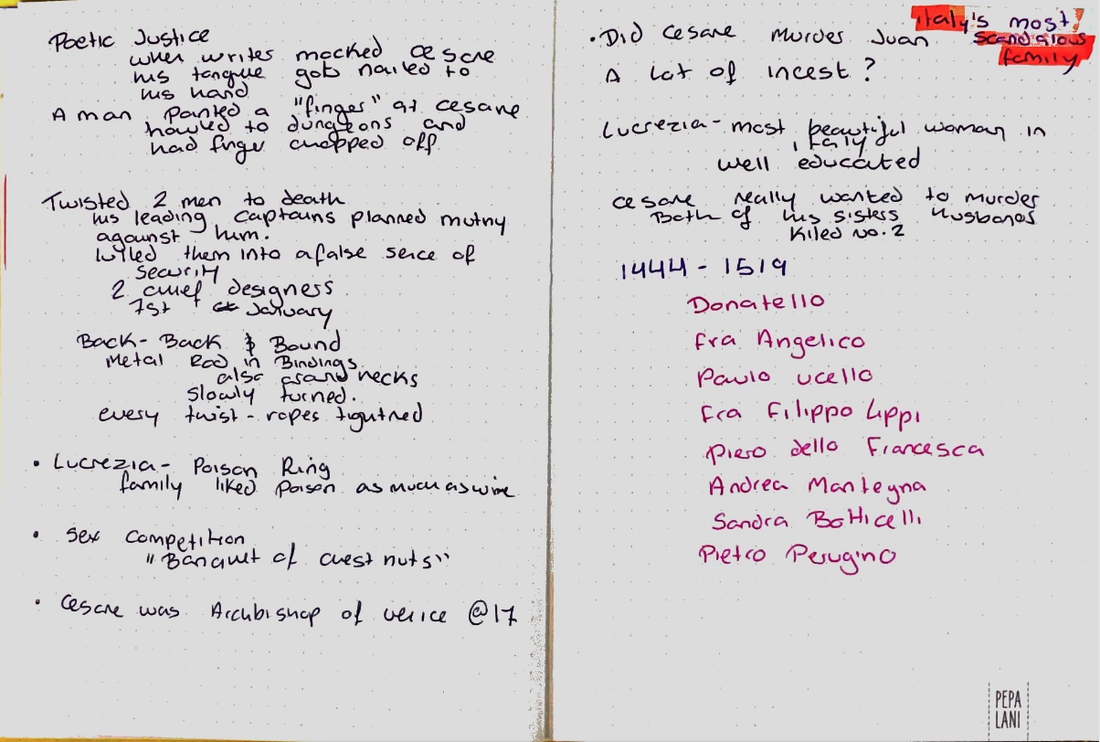 Poetic Justice
when writes mocked cesare
his tongue got nailed to
his hand
A man panted a "finger" at cesare
hawled to dungeons and
had finger chopped off
Twisted 2 men to death
his leading captains planned mutny
against him.
lulled them into a false sence of
security
2 chief designers
1st January
Back-Back & Bound
Metal Rod in Bindings
also around necks
slowly turned.
every twist - ropes tightned
• Lucrezia - Poison Ring
family liked Poison as much as wine
• Sex Competition
"Banquet of chestnuts"
• Cesare was Archbishop of venice @17
italy's most
scandalous
family
• Did Cesare Murder Juan
A Lot of incest?
Lucrezia - most beautiful woman in
italy
well educated
cesare really wanted to murder
Both of his sisters Husbands
Killed No.2
1444 - 1519
Donatello
Fra Angelico
Paulo ucello
Fra Filippo Lippi
Piero dello Francesca
Andrea Mantegna
Sandra Botticelli
Pietro Perugino
PEPA
LANI